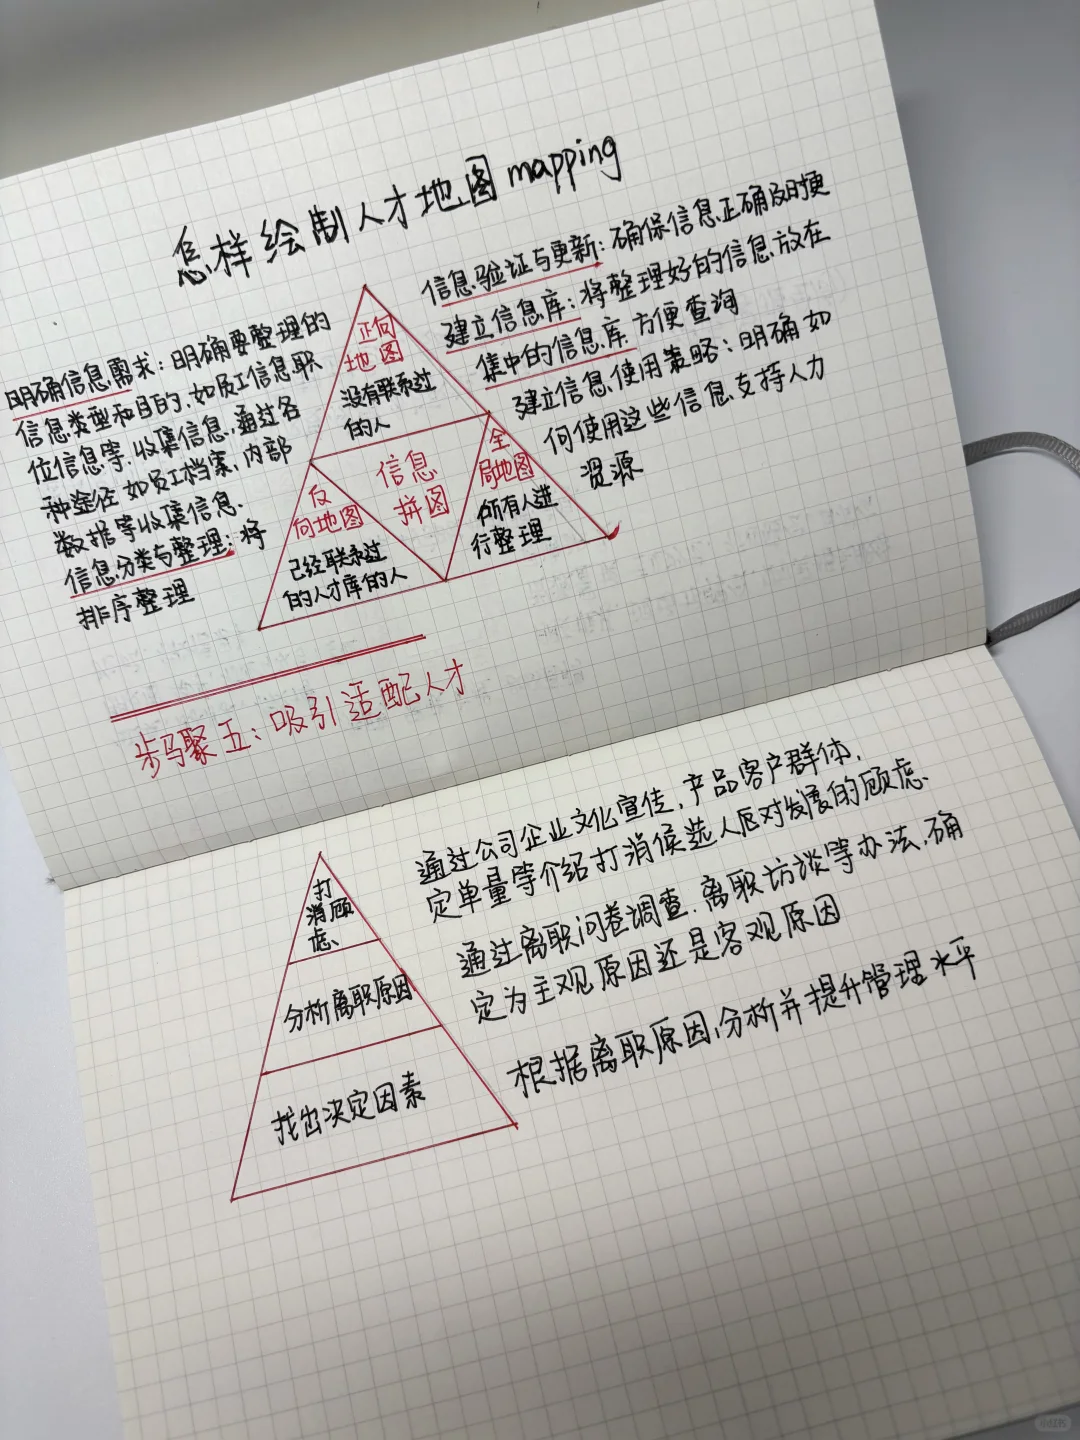 怎样绘制人才地图mapping
明确信息需求：明确要整理的
信息类型和目的，如员工信息职
位信息等，收集信息，通过各
种途径 如员工档案，内部
数据等收集信息．
信息分类与整理：将
排序整理
正向
地图
没有联系过
的人
信息
拼图
反
向地图
已经联系过
的人才库的人
全
局地图
所有人进
行整理
信息验证与更新：确保信息正确及时更
建立信息库：将整理好的信息放在
集中的信息库 方便查询
建立信息使用策略：明确如
何使用这些信息支持人力
资源
步骤五：吸引适配人才
打
消顾
虑、
分析离职原因
找出决定因素
通过公司企业文化宣传，产品客户群体，
定单量等介绍打消候选人应对发展的顾虑．
通过离职问卷调查．离职访谈等办法，确
定为主观原因还是客观原因
根据离职原因，分析并提升管理水平